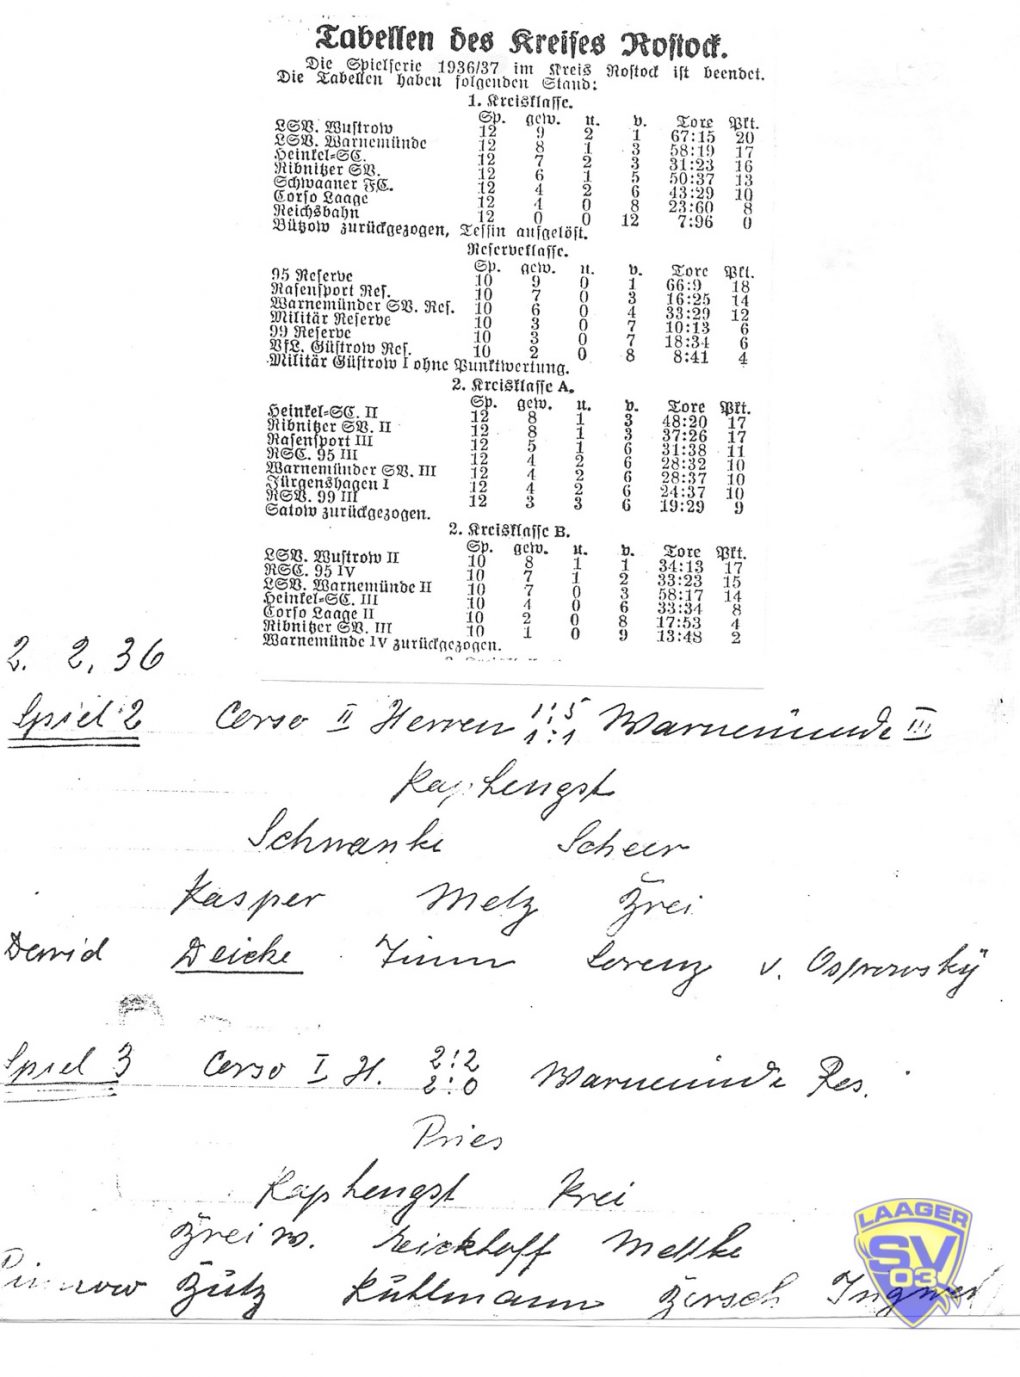 Tabellen des Kreises Rostock.
Die Spielserie 1936/37 im Kreis Rostock ist beendet.
Die Tabellen haben folgenden Stand:
1. Kreisklasse.
Sp. gew. u. v. Tore Pkt.
LSV. Wustrow 12 9 2 1 67:15 20
LSV. Warnemünde 12 8 1 3 58:19 17
Heinkel-SC. 12 7 2 3 31:23 16
Ribnitzer SV. 12 6 1 5 50:37 13
Schwaaner FC. 12 4 2 6 43:29 10
Corso Laage 12 4 0 8 23:60 8
Reichsbahn 12 0 0 12 7:96 0
Bützow zurückgezogen, Tessin aufgelöst.
Reserveklasse.
Sp. gew. u. v. Tore Pkt.
95 Reserve 10 9 0 1 66:9 18
Rasensport Res. 10 7 0 3 16:25 14
Warnemünder SV. Res. 10 6 0 4 33:29 12
Militär Reserve 10 3 0 7 10:13 6
99 Reserve 10 3 0 7 18:34 6
VfL. Güstrow Res. 10 2 0 8 8:41 4
Militär Güstrow I ohne Punktwertung.
2. Kreisklasse A.
Sp. gew. u. v. Tore Pkt.
Heinkel-SC. II 12 8 1 3 48:20 17
Ribnitzer SV. II 12 8 1 3 37:26 17
Rasensport III 12 5 1 6 31:38 11
RSC. 95 III 12 4 2 6 28:32 10
Warnemünder SV. III 12 4 2 6 28:37 10
Jürgenshagen I 12 4 2 6 24:37 10
RSV. 99 III 12 3 3 6 19:29 9
Satow zurückgezogen.
2. Kreisklasse B.
Sp. gew. u. v. Tore Pkt.
LSV. Wustrow II 10 8 1 1 34:13 17
RSC. 95 IV 10 7 1 2 33:23 15
LSV. Warnemünde II 10 7 0 3 58:17 14
Heinkel-SC. III 10 4 0 6 33:34 8
Corso Laage II 10 2 0 8 17:53 4
Ribnitzer SV. III 10 1 0 9 13:48 2
Warnemünde IV zurückgezogen.
2. 2. 36
Spiel 2 Corso II Herren 1:5 Warnemünde III
1:1
Kaphengst
Schwanke Scheer
Kasper Metz Krei
David Deicke Timm Lorenz v. Osprowsky
Spiel 3 Corso I H. 2:2 Warnemünde Res.
2:0
Pries
Kaphengst Krei
Krei W. Eickhoff
Kühlmann
LAAGER
SV
03